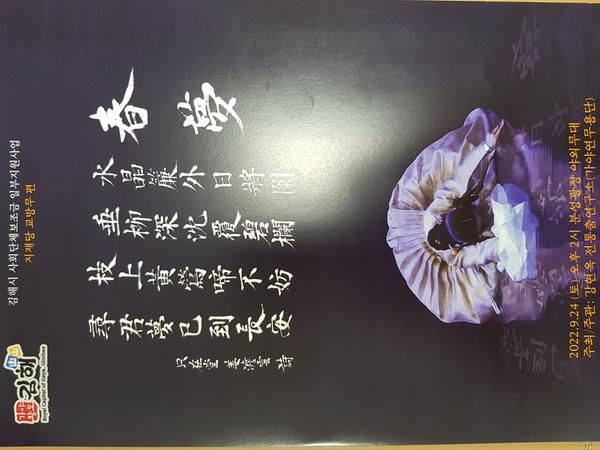 가야왕도 김해
Royal Capital of Gaya, Gimhae
김해시 사회단체보조금 일부지원사업
지재당 교방무 편
春夢
水晶簾外日將闌
垂柳深沈覆碧欄
枝上黃鶯啼不妨
尋君夢已到長安
只在堂 姜澹雲 詩
2022.9.24 (토) 오후 2시 분성광장 야외무대
주최/주관: 강현옥 전통춤연구소(가야연무용단)